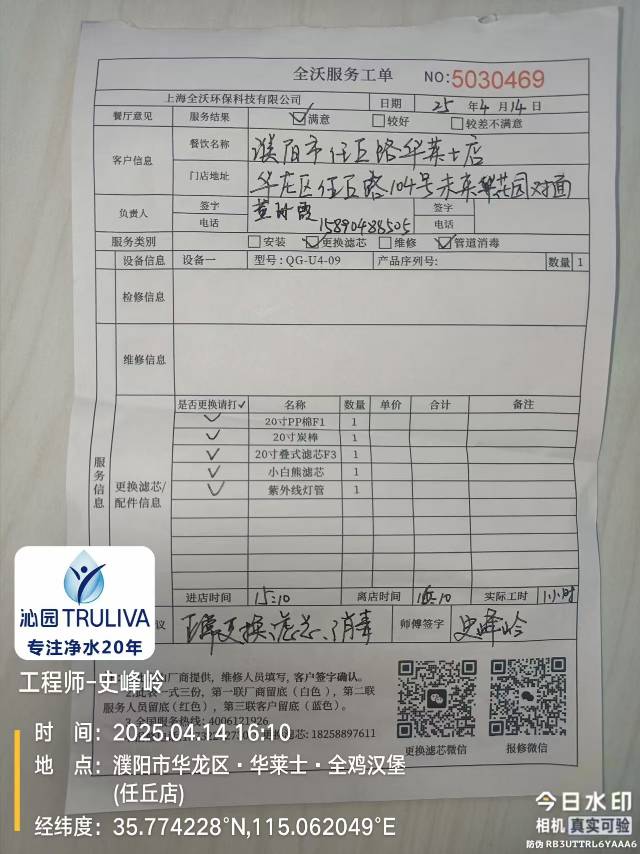 全沃服务工单
NO:5030469
上海全沃环保科技有限公司 日期 25 年 4 月 14 日
餐厅意见 服务结果 满意 较好 较差不满意
客户信息 餐饮名称 濮阳市任丘路华莱士店
门店地址 华龙区任丘路104号未来花园对面
负责人 签字 签字
电话 15890488505 电话
服务类别 安装 更换滤芯 维修 管道消毒
设备信息 设备一 型号:QG-U4-09 产品序列号: 数量 1
检修信息
维修信息
服务信息
更换滤芯/配件信息
是否更换请打✓ 名称 数量 单价 合计 备注
✓ 20寸PP棉F1 1
✓ 20寸炭棒 1
✓ 20寸叠式滤芯F3 1
✓ 小白熊滤芯 1
✓ 紫外线灯管 1
进店时间 15:10 离店时间 16:10 实际工时 1小时
议 更换滤芯、消毒 师傅签字 史峰岭
厂商提供，维修人员填写，客户签确认。
2.此表一式三份，第一联厂商留底（白色），第二联
服务人员留底(红色），第三联客户留底（蓝色）。
3.全国服务热线：4006121926
滤芯: 18258897611
更换滤芯微信 报修微信
沁园TRULIVA
专注净水20年
工程师-史峰岭
时 间：2025.04.14 16:10
地 点：濮阳市华龙区·华莱士·全鸡汉堡
(任丘店)
经纬度：35.774228°N,115.062049°E
今日水印
相机 真实可验
防伪 RB3UTTRL6YAAA6